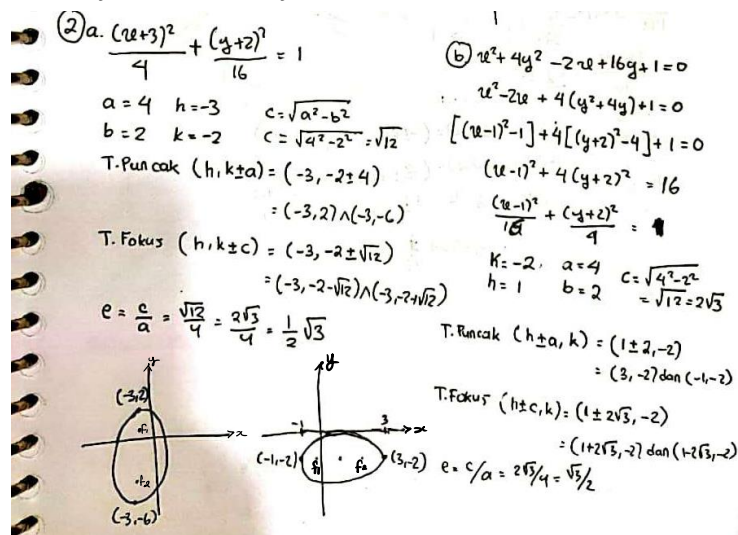 ② a. (x+3)²/4 + (y+2)²/16 = 1
a = 4 h = -3 c = √(a²-b²)
b = 2 k = -2 c = √(4²-2²) = √12
T. Puncak (h, k±a) = (-3, -2±4)
= (-3,2) ∧ (-3,-6)
T. Fokus (h, k±c) = (-3, -2±√12)
= (-3, -2-√12) ∧ (-3, -2+√12)
e = c/a = √12/4 = 2√3/4 = 1/2 √3
y
(-3,2)
f₁
x
f₂
(-3,-6)
y
-1 3 x
(-1,-2) f₁ f₂ (3,-2)
ⓑ x² + 4y² - 2x + 16y + 1 = 0
x² - 2x + 4(y²+4y) + 1 = 0
[(x-1)²-1] + 4[(y+2)²-4] + 1 = 0
(x-1)² + 4(y+2)² = 16
(x-1)²/16 + (y+2)²/4 = 1
K = -2, a = 4 c = √(4²-2²)
h = 1 b = 2 = √12 = 2√3
T. Puncak (h±a, k) = (1±2, -2)
= (3, -2) dan (-1, -2)
T. Fokus (h±c, k) = (1±2√3, -2)
= (1+2√3, -2) dan (1-2√3, -2)
e = c/a = 2√3/4 = √3/2